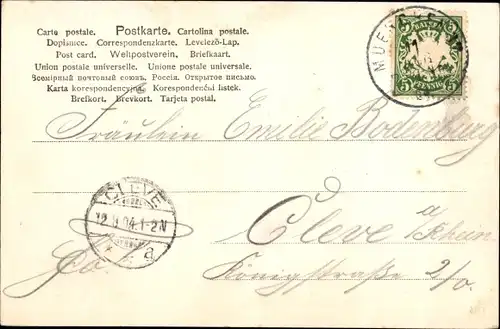 Carte postale. Postkarte. Cartolina postale.
Dopisnice. Correspondenzkarte. Levelező-Lap.
Post card. Weltpostverein. Briefkaart.
Union postale universelle. Unione postale universale.
Всемірный почтовый союзъ. Россія. Открытое письмо.
Karta korespondencyjna. Korespondenční lístek.
Brefkort. Brevkort. Tarjeta postal.
5 PFENNIG 5
Fräulein Emilie Bodenburg
CLEVE
12.11.04.1-2N
* a
Cleve a/Rhein
Königstraße 2/0.